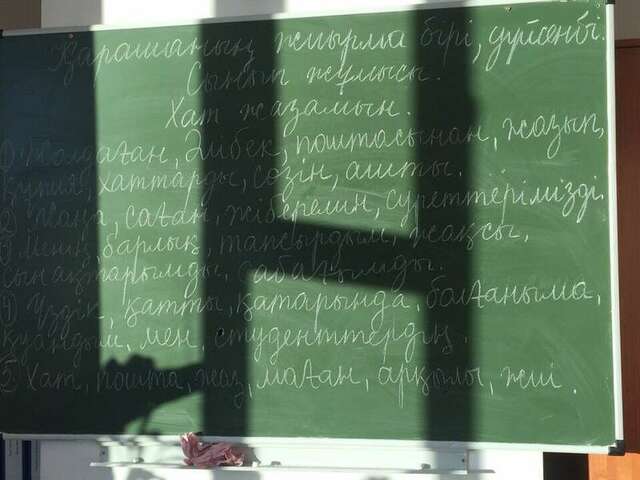 Қарашаның жиырма бірі, дүйсенбі.
Сынып жұмысы.
Хат жазамын.
① Жолдаған, Әлібек, поштасынан, жазып,
құпия, хаттарды, сөзін, ашты.
② Жаңа, саған, жіберемін, суреттерімізді,
③ Менің, барлық, тапсырдым, жақсы,
сынақтарымды, сабағымды.
④ Үздік, қатты, қатарында, болғаныма,
қуандым, мен, студенттердің.
⑤ Хат, пошта, жаз, маған, арқылы, жиі.